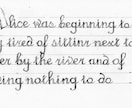 Alice was beginning to
tired of sitting next to
er by the river and of
ing nothing to do